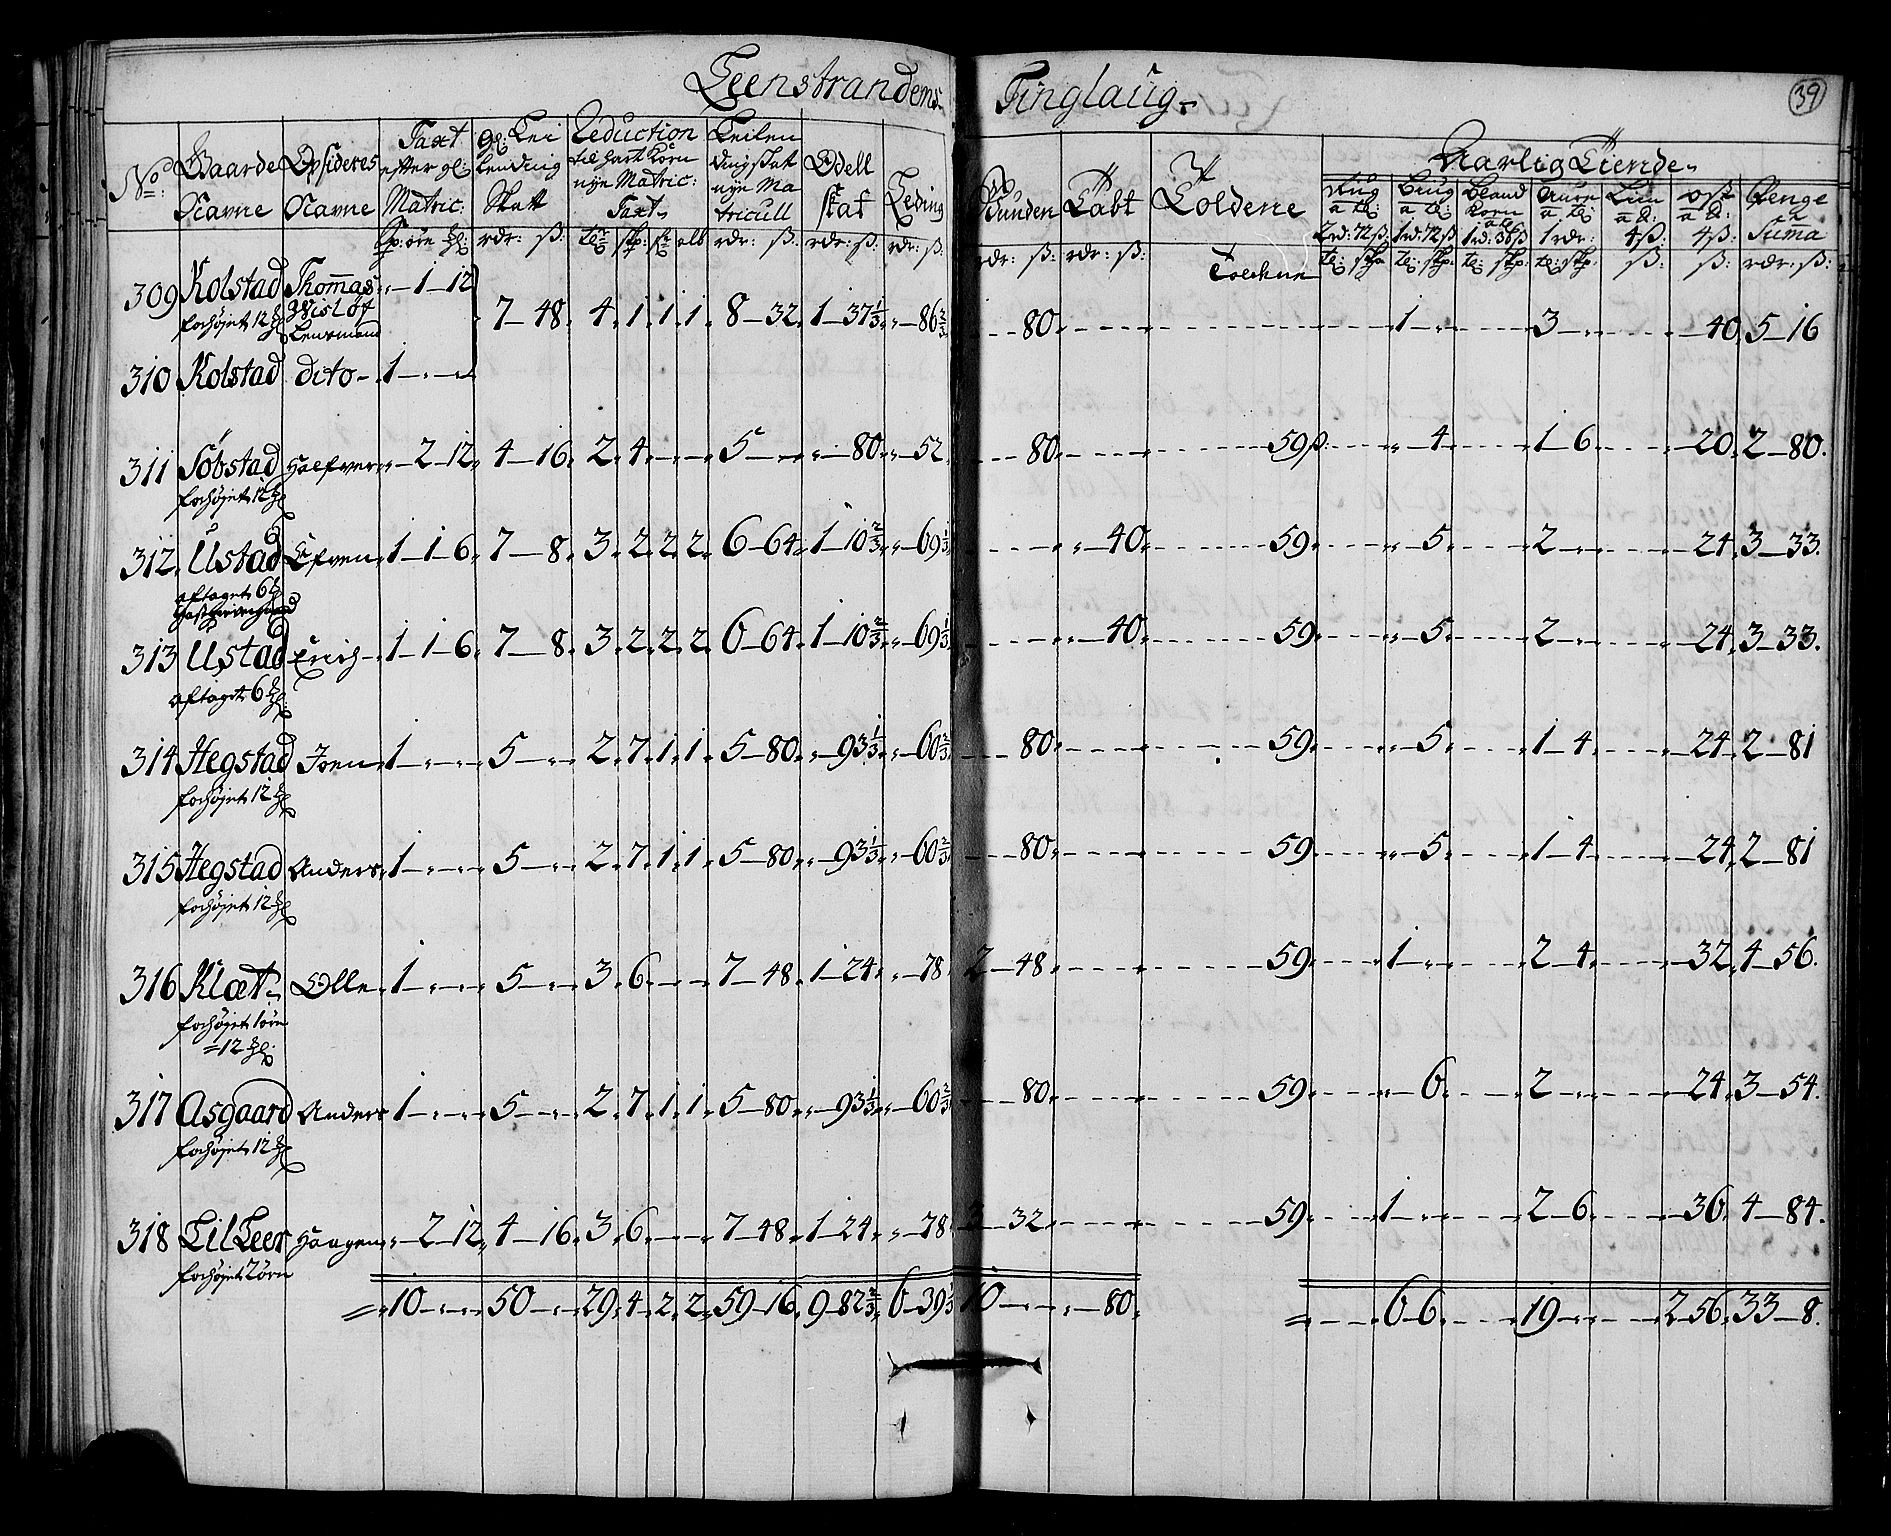 Leenstrandens Tinglaug
39
No: Gaarde Nafne Opsideres Nafne Taxt efter gl: Matric: gl: Lei lendning Skatt Reduction til hart Korn nye Matric: Taxt Leilendingskat nye Matricull Odell skat Leding Vunden Tabt Toldene Aarlig Tiende
Rug Biug Bland Korn ost Penge Suma
2rd: 72ß 1rd: 72ß 1rd: 36ß 1rdr: 4ß: 4ß:
Sp: ørn rdr: ß: rdr: ß: rdr: ß: rdr: ß: rdr: ß: rdr: ß: ß: ß: rdr: ß:
309 Kolstad Thomas 1 12
forhøjet 12 7 48 4 1 1 1 8 32 1 37 1/3 86 2/3 80 1 3 40 5 16
Lensmand
310 Kolstad dito 1
311 Søbstad Halfver 2 12 4 16 2 4 5 80 52 80 59ß 4 1 6 20 2 80
forhøjet 12
312 Ustad Efven 1 1 6 7 8 3 2 2 2 6 64 1 10 2/3 69 1/3 40 59 5 2 24 3 33
aftaget 6
313 Ustad Erich 1 1 6 7 8 3 2 2 2 6 64 1 10 2/3 69 1/3 40 59 5 2 24 3 33
aftaget 6
314 Hegstad Joen 1 5 2 7 1 1 5 80 93 1/3 60 2/3 80 59 5 1 4 24 2 81
forhøjet 12
315 Hegstad Anders 1 5 2 7 1 1 5 80 93 1/3 60 2/3 80 59 5 1 4 24 2 81
forhøjet 12
316 Klæt Olle 1 5 3 6 7 48 1 24 78 2 48 59 1 2 4 32 4 56
forhøjet 1 ørn
12
317 Asgaard Anders 1 5 2 7 1 1 5 80 93 1/3 60 2/3 80 59 6 2 24 3 54
forhøjet 12
318 Lil Leer Haagen 2 12 4 16 3 6 7 48 1 24 78 3 32 59 1 2 6 36 4 84
forhøjet 2 ørn
10 50 29 4 2 2 59 16 9 82 2/3 6 39 1/3 10 80 6 6 19 2 56 33 8